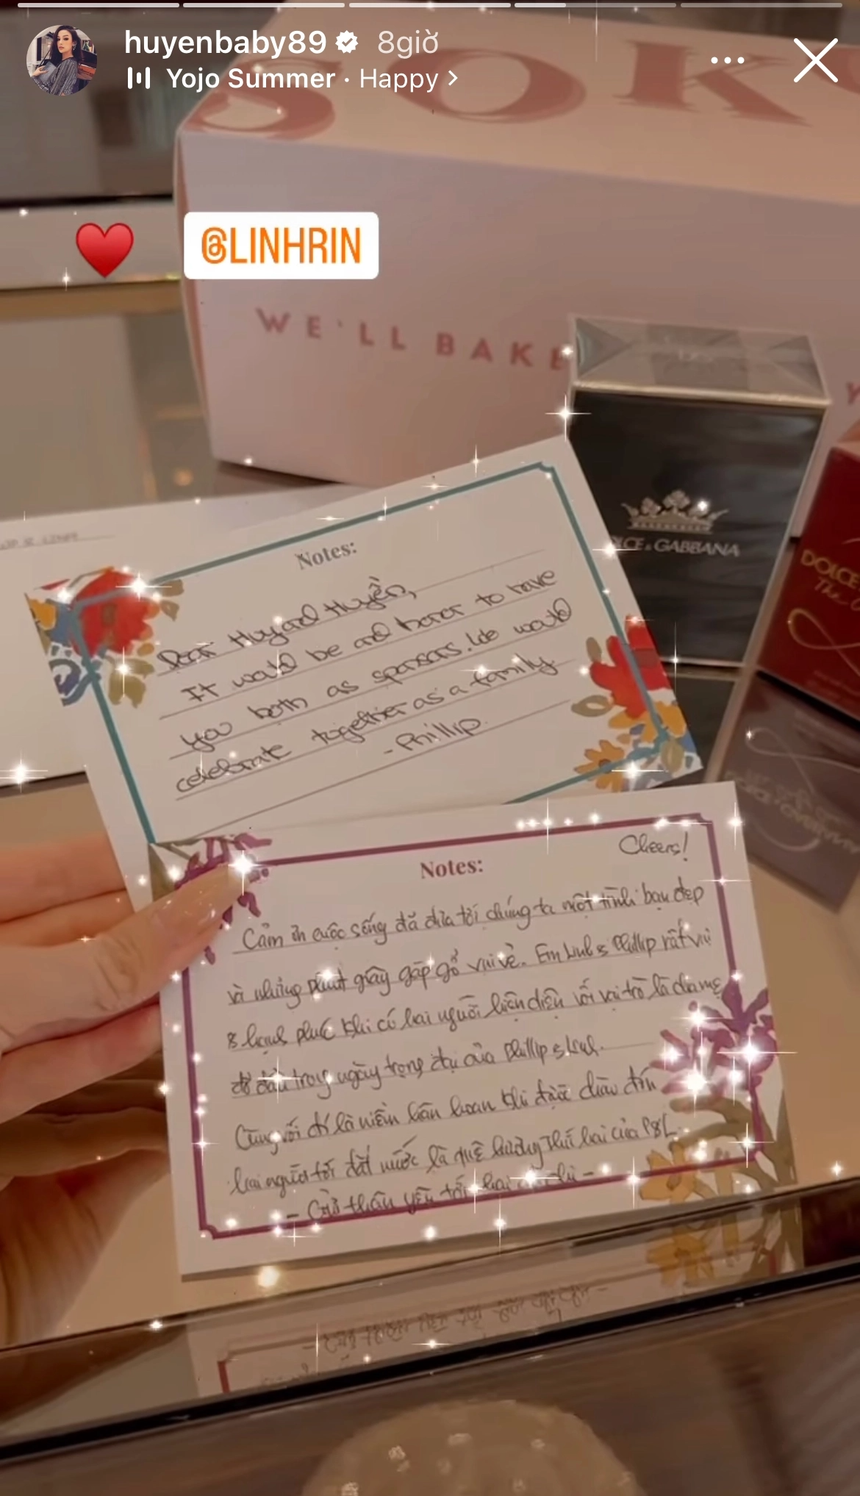 huyenbaby89 8giờ
Yojo Summer · Happy
SOK
@LINHRIN
WE'LL BAKE
DOLCE & GABBANA
DOLCE
The
Notes:
Dear Huy and Huyền,
It would be and honor to have
you both as sponsors. We would
celebrate together as a family
- Phillip
Cheers!
Notes:
Cảm ơn cuộc sống đã đưa tới chúng ta một tình bạn đẹp
và những phút giây gặp gỡ vui vẻ. Em Linh & Phillip rất vui
& hạnh phúc khi có hai người hiện diện với vai trò là cha mẹ
đỡ đầu trong ngày trọng đại của Phillip & Linh.
Cùng với đó là niềm hân hoan khi được chào đón
hai người tới đất nước là quê hương thứ hai của P&L.
- Gửi thân yêu tới hai